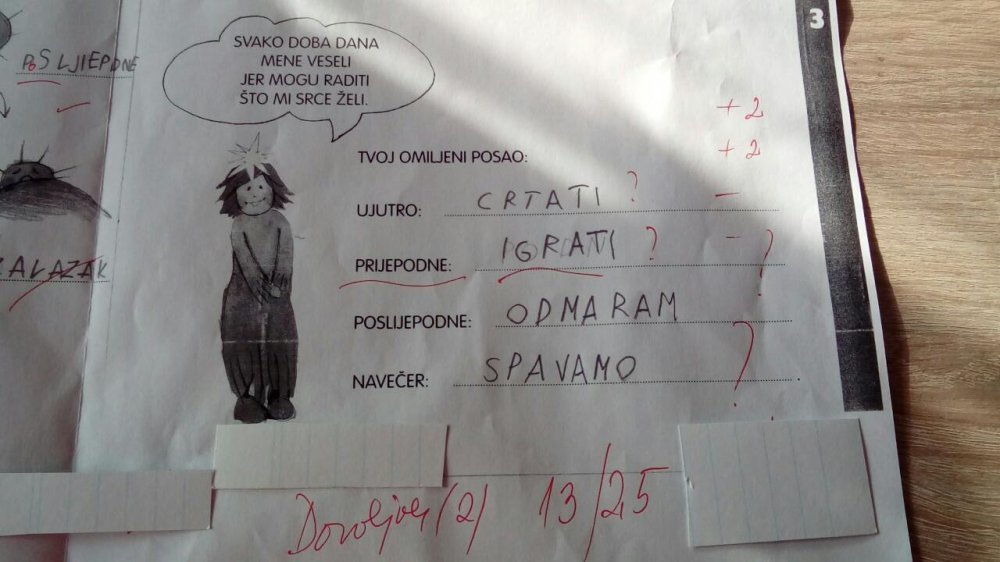 3
POSLJIEPDNE
SVAKO DOBA DANA
MENE VESELI
JER MOGU RADITI
ŠTO MI SRCE ŽELI.
+2
TVOJ OMILJENI POSAO: +2
UJUTRO: CRTATI ? –
PRIJEPODNE: IGRATI ? – ?
ZALAZAK
POSLIJEPODNE: ODMARAM
NAVEČER: SPAVAMO ?
Dovoljan (2) 13/25